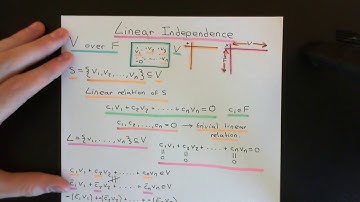 Linear Independence
V over F
V
S = {v₁, v₂, ..., vₙ} ⊆ V
Linear relation of S
c₁v₁ + c₂v₂ + ..... + cₙvₙ = 0 cᵢ ∈ F
c₁, c₂, ..., cₙ = 0 → trivial linear relation
L = {v₁, ..., vₙ} ⊆ V
c₁v₁ + c₂v₂ + ..... + cₙvₙ = 0
|| || ||
0 0 0
c₁v₁ + c₂v₂ + ..... + cₙvₙ ∈ V
c̄₁v₁ + c̄₂v₂ + ..... + c̄ₙvₙ ∈ V